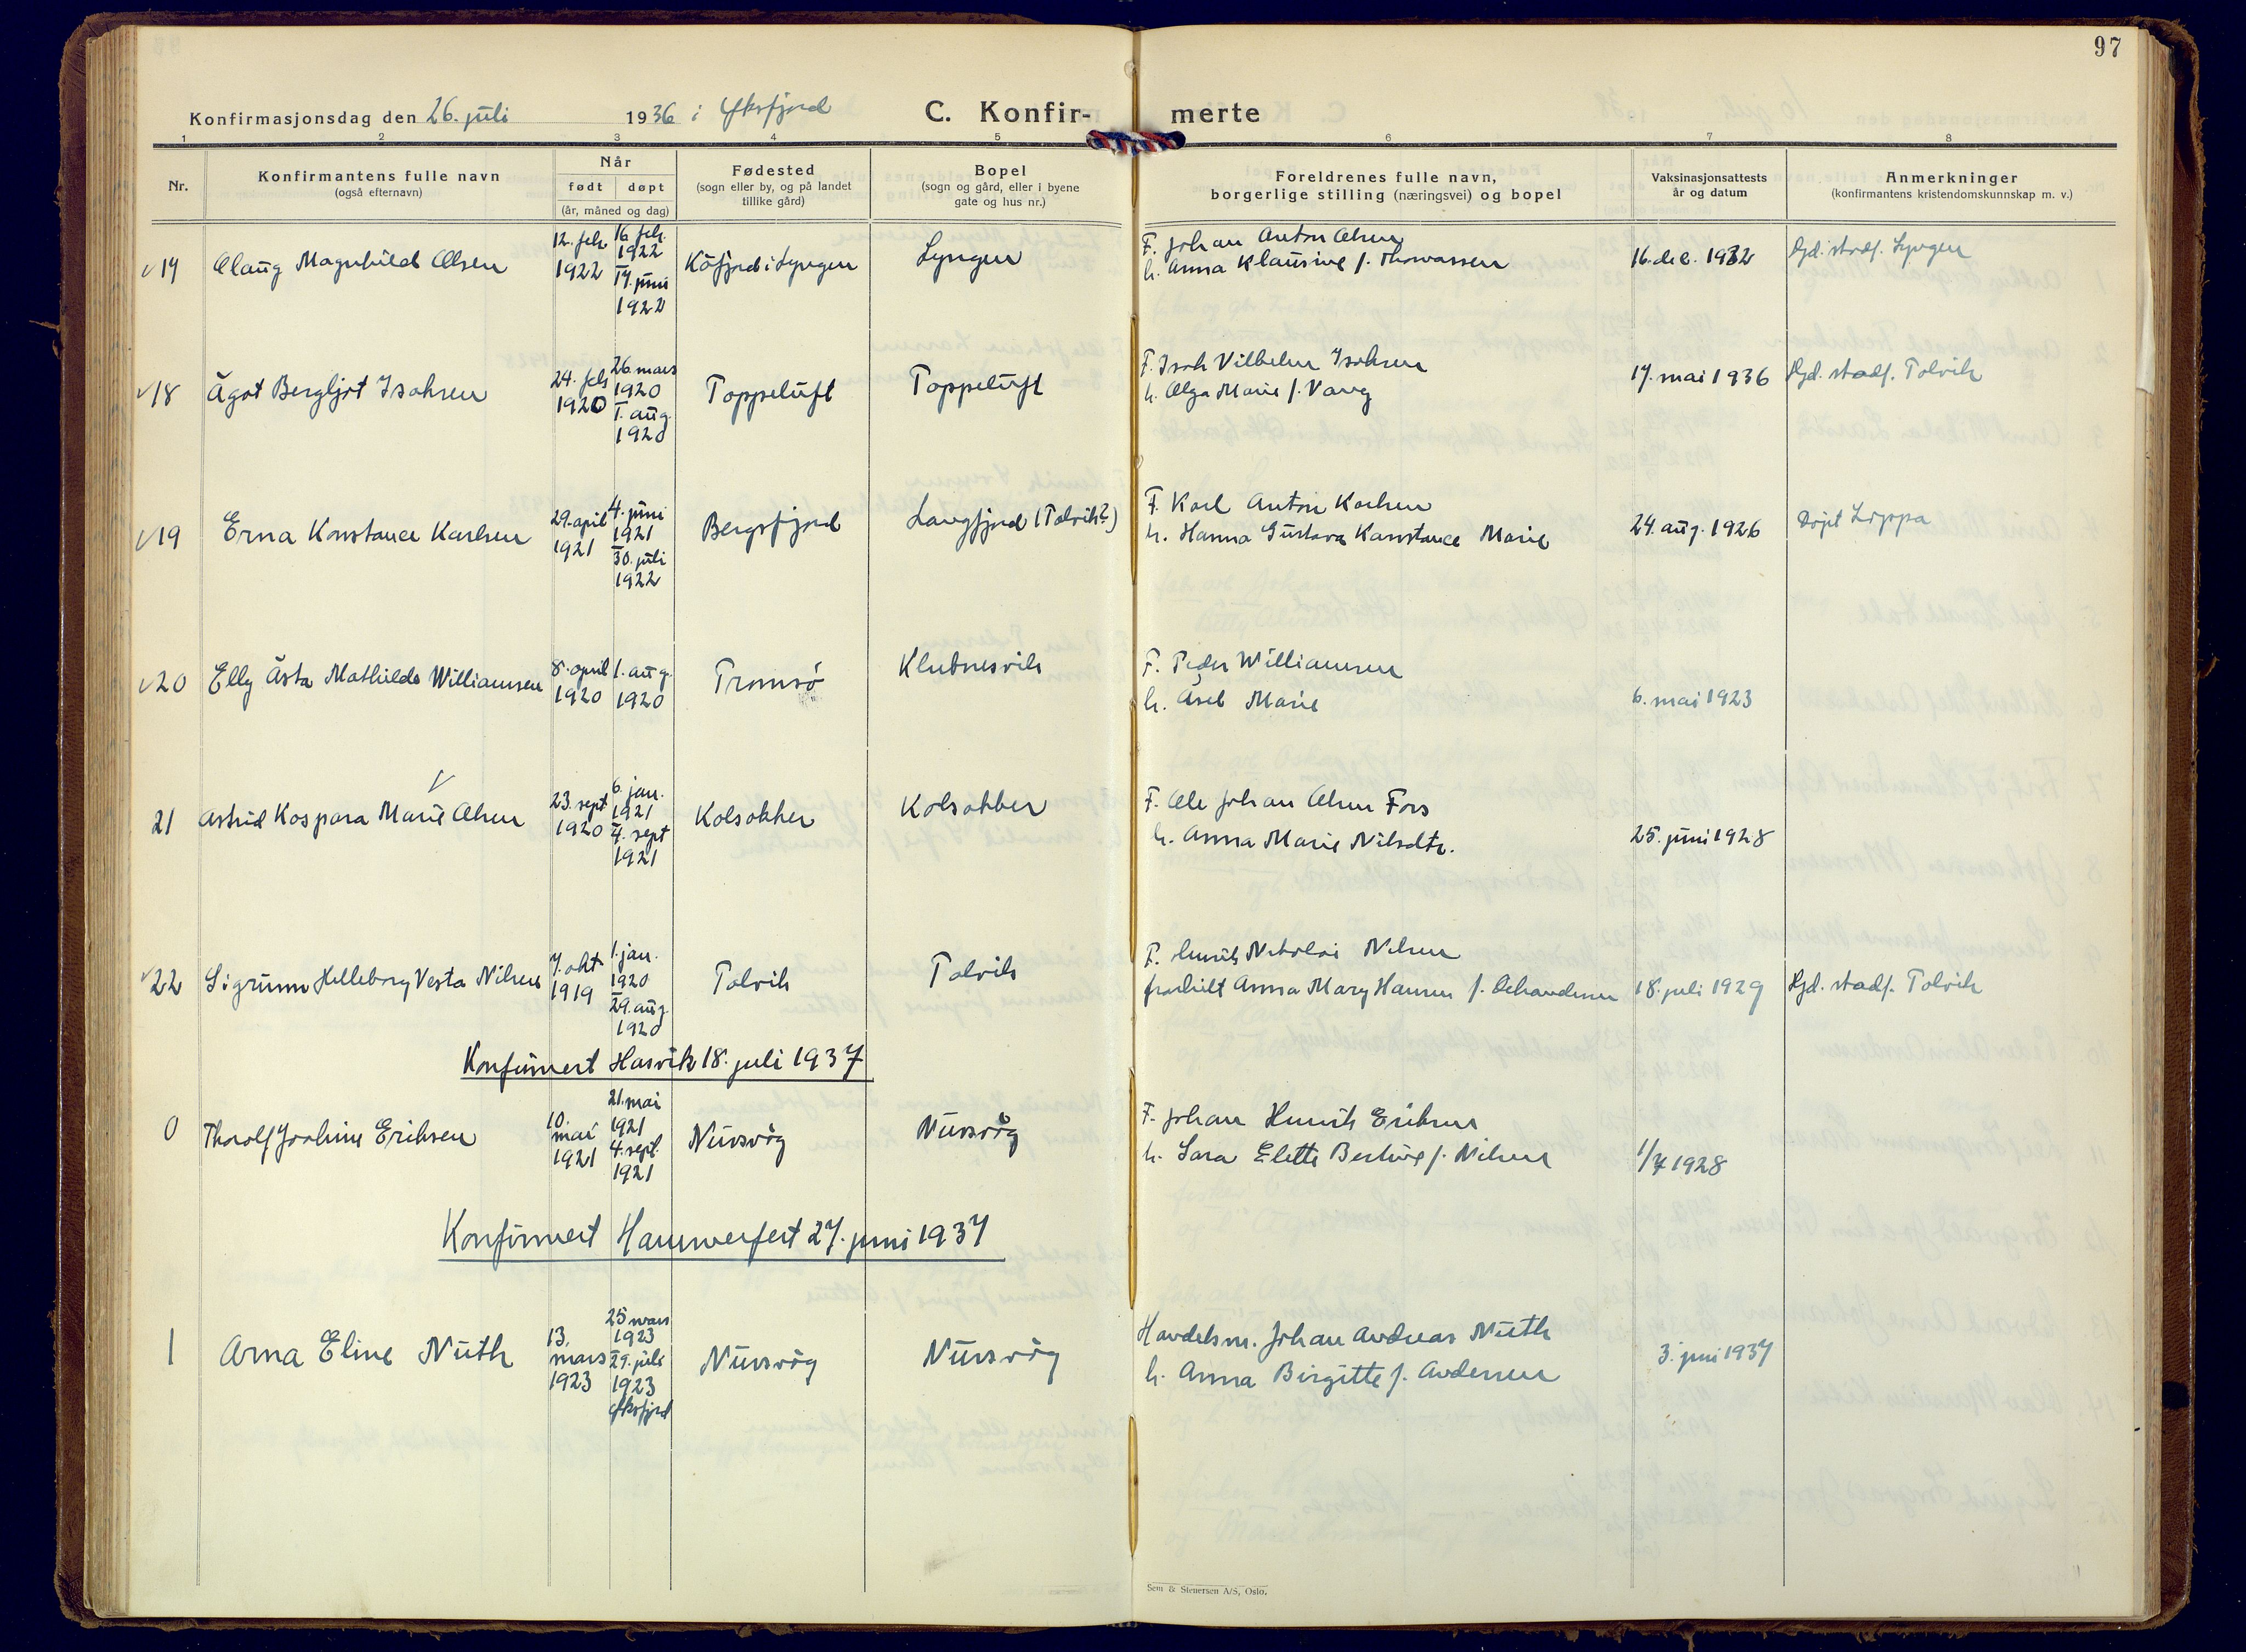 97
Konfirmasjonsdag den 26. juli 1936 i Øksfjord
C. Konfir- merte
1 2 3 4 5 6 7 8
Nr.
Konfirmantens fulle navn
(også efternavn)
Når
født døpt
(år, måned og dag)
Fødested
(sogn eller by, og på landet
tillike gård)
Bopel
(sogn og gård, eller i byene
gate og hus nr.)
Foreldrenes fulle navn,
borgerlige stilling (næringsvei) og bopel
Vaksinasjonsattests
år og datum
Anmerkninger
(konfirmantens kristendomskunnskap m. v.)
17 Olaug Magnhild Olsen
12. feb. 1922
16 feb. 1922
17. juni 1922
Kåfjord i Lyngen
Lyngen
F. Johan Anton Olsen
h. Anna Klausine f. Thomassen
16. des. 1932
Hjd. stadf. Lyngen
18 Ågot Bergljot Isaksen
24. feb 1920
26. mars 1920
1. aug. 1920
Toppeluft
Toppeluft
F. Isak Vilhelm Isaksen
h. Olga Marie f. Vang
17. mai 1936
Hjd. stadf. Tolvik
19 Erna Konstance Karlsen
29. april 1921
4. juni 1921
30. juli 1922
Bergsfjord
Langfjord (Tolvik?)
F. Karl Anton Karlsen
h. Hanna Gustava Konstance Marie
24. aug. 1926
Døpt Loppa
20 Elly Åsta Mathilde Williamsen
8. april 1920
1. aug. 1920
Tromsø
Klubnesvik
F. Peder Williamsen
h. Åsel Marie
6. mai 1923
21 Astrid Kaspara Marie Olsen
23. sept 1920
6. jan. 1921
4. sept 1921
Kolsokker
Kolsokker
F. Ole Johan Olsen Fors
h. Anna Marie Nilsdtr.
25. juni 1928
22 Sigrunn Helleborg Vesta Nilsen
7. okt 1919
1. jan. 1920
29. aug. 1920
Tolvik
Tolvik
F. Henrik Nikolai Nilsen
fraskilt Anna Mary Hansen f.
18. juli 1929
Hjd. stadf. Tolvik
Konfirmert Hasvik 18. juli 1937
0 Thorolf Joakim Eriksen
10. mai 1921
21. mai 1921
4. sept. 1921
Nuvsvåg
Nuvsvåg
F. Johan Henrik Eriksen
h. Sara Elette Berline f. Nilsen
1/7 1928
Konfirmert Hammerfest 27. juni 1937
1 Arna Eline Nuth
13. mars 1923
25 mars 1923
29. juli 1923
Øksfjord
Nuvsvåg
Nuvsvåg
Handelsm. Johan Andreas Nuth
h. Anna Birgitte f. Andersen
3. juni 1937
Sem & Stenersen A/S, Oslo.